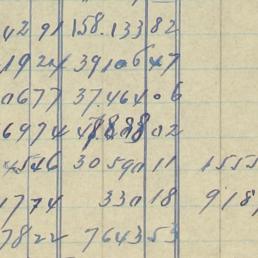 42 91 158.133 82
1924 391067
0677 37.464.06
6974 02
4546 3059011 1555
1774 33018 918
7822 764353